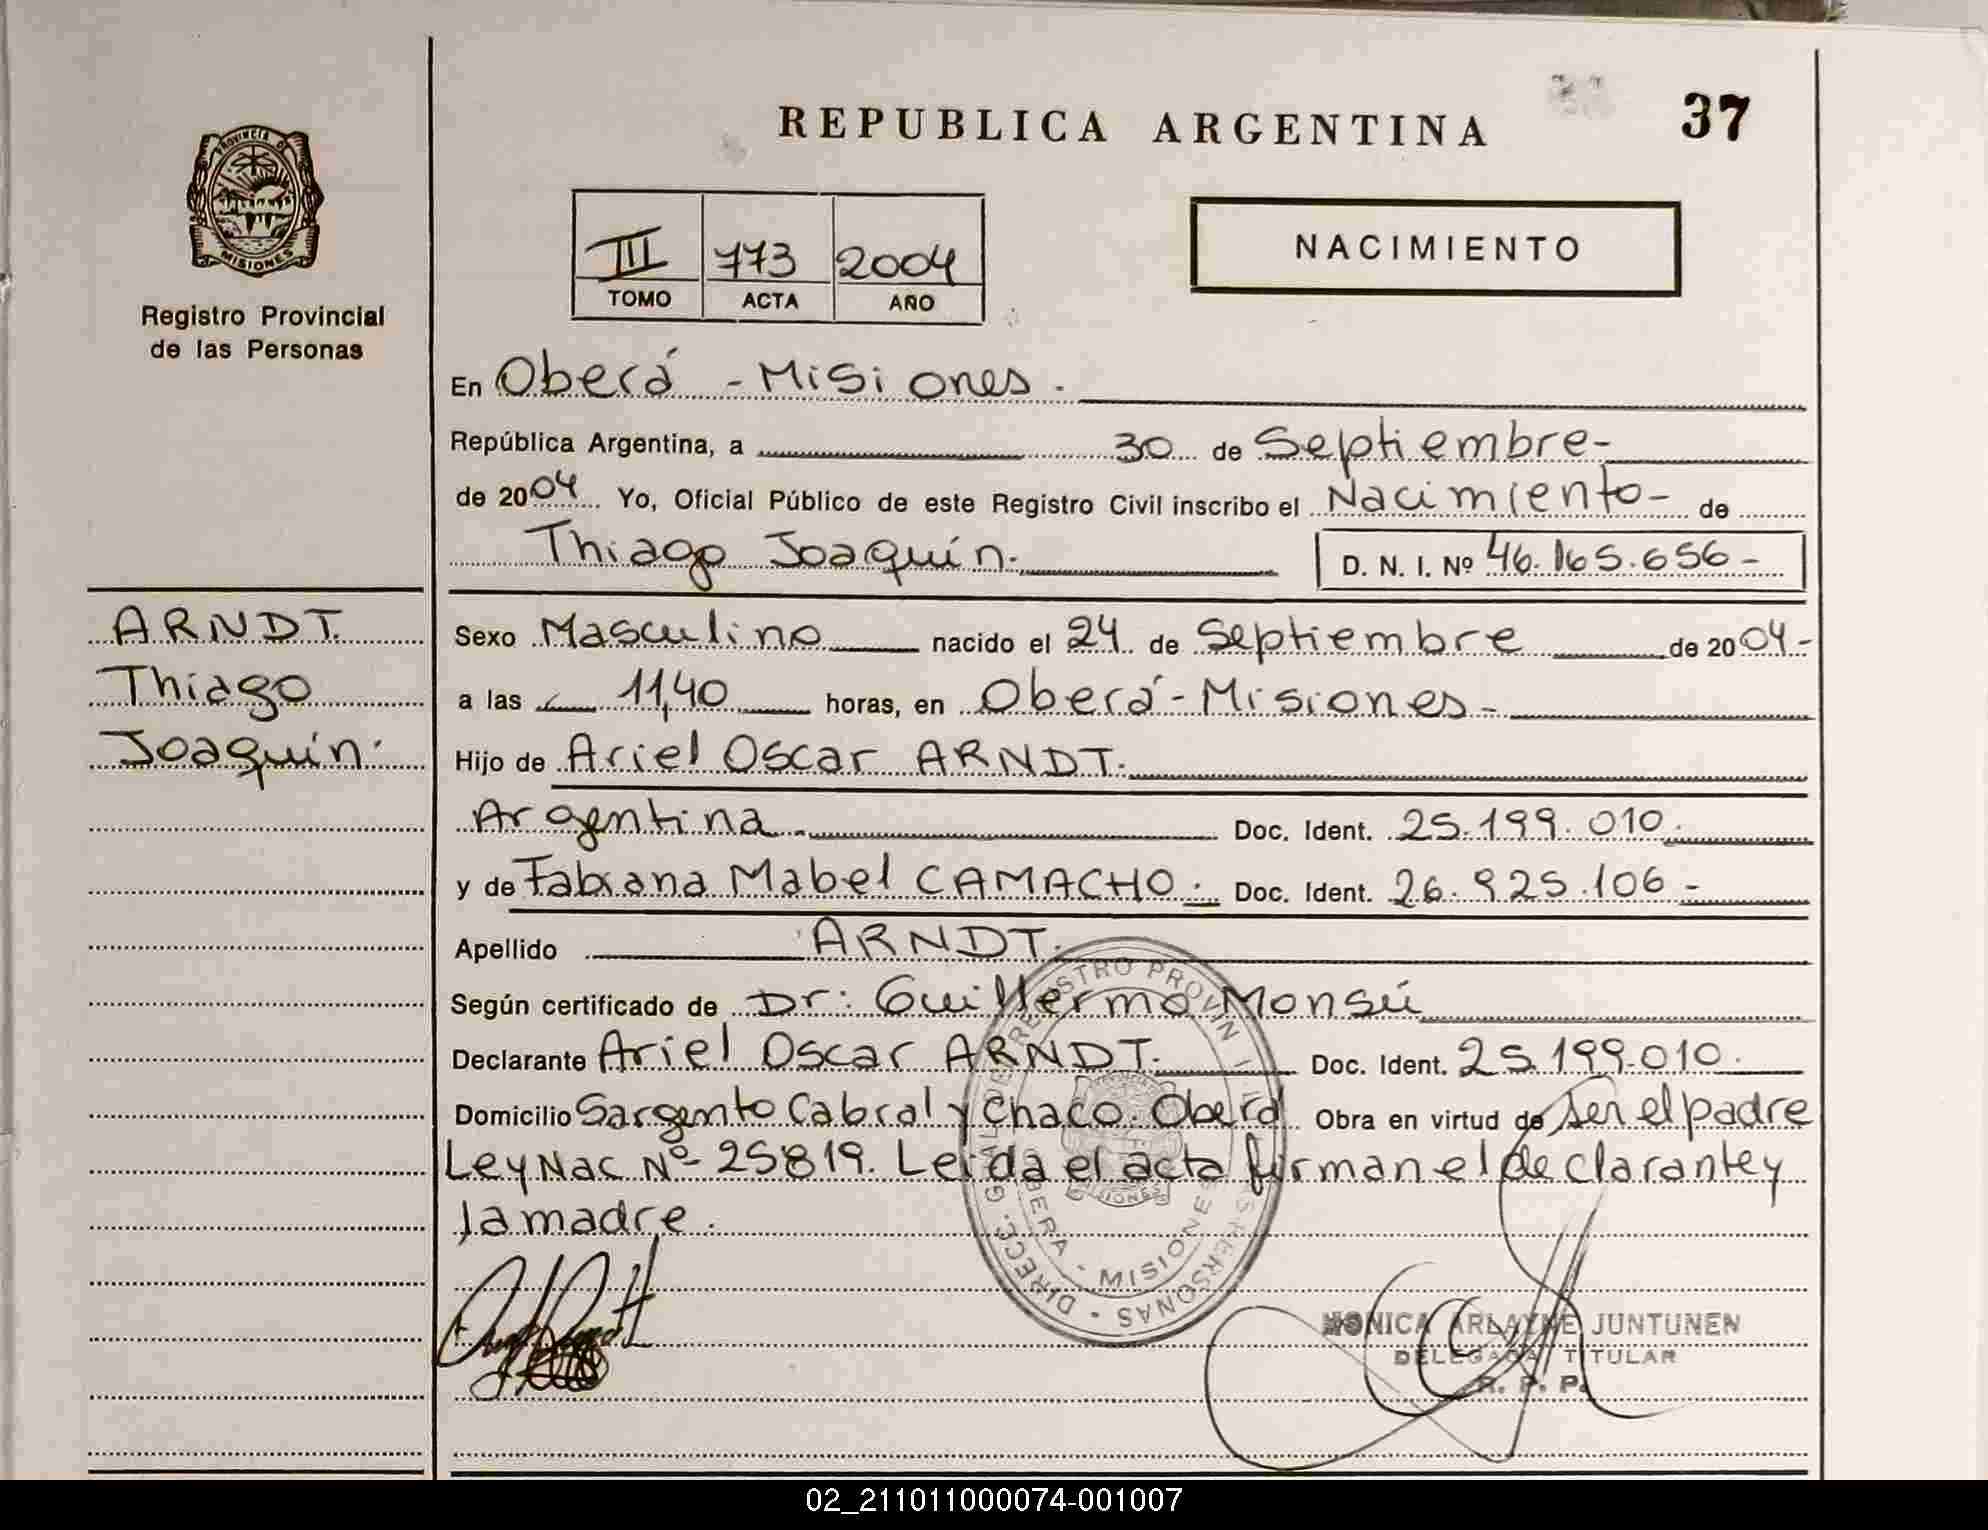 REPUBLICA ARGENTINA
37
PROVINCIA DE
MISIONES
Registro Provincial
de las Personas
III 773 2004
TOMO ACTA AÑO
NACIMIENTO
En Oberá - Misiones.
República Argentina, a 30 de Septiembre-
de 2004 Yo, Oficial Público de este Registro Civil inscribo el Nacimiento- de
Thiago Joaquín.
D. N. I. Nº 46.165.656-
ARNDT.
Thiago
Joaquín.
Sexo Masculino nacido el 24 de Septiembre de 2004-
a las 11,40 horas, en Oberá-Misiones-
Hijo de Ariel Oscar ARNDT.
Argentina. Doc. Ident. 25.199.010.
y de Fabiana Mabel CAMACHO. Doc. Ident. 26.925.106-
Apellido ARNDT.
Según certificado de Dr: Guillermo Monsú
Declarante Ariel Oscar ARNDT. Doc. Ident. 25.199.010.
Domicilio Sargento Cabral y Chaco. Oberá Obra en virtud de ser el padre
Ley Nac Nº 25819. Leída el acta firman el declarante y
la madre.
MONICA ARLAYNE JUNTUNEN
DELEGADA TITULAR
R. P. P.
02_211011000074-001007